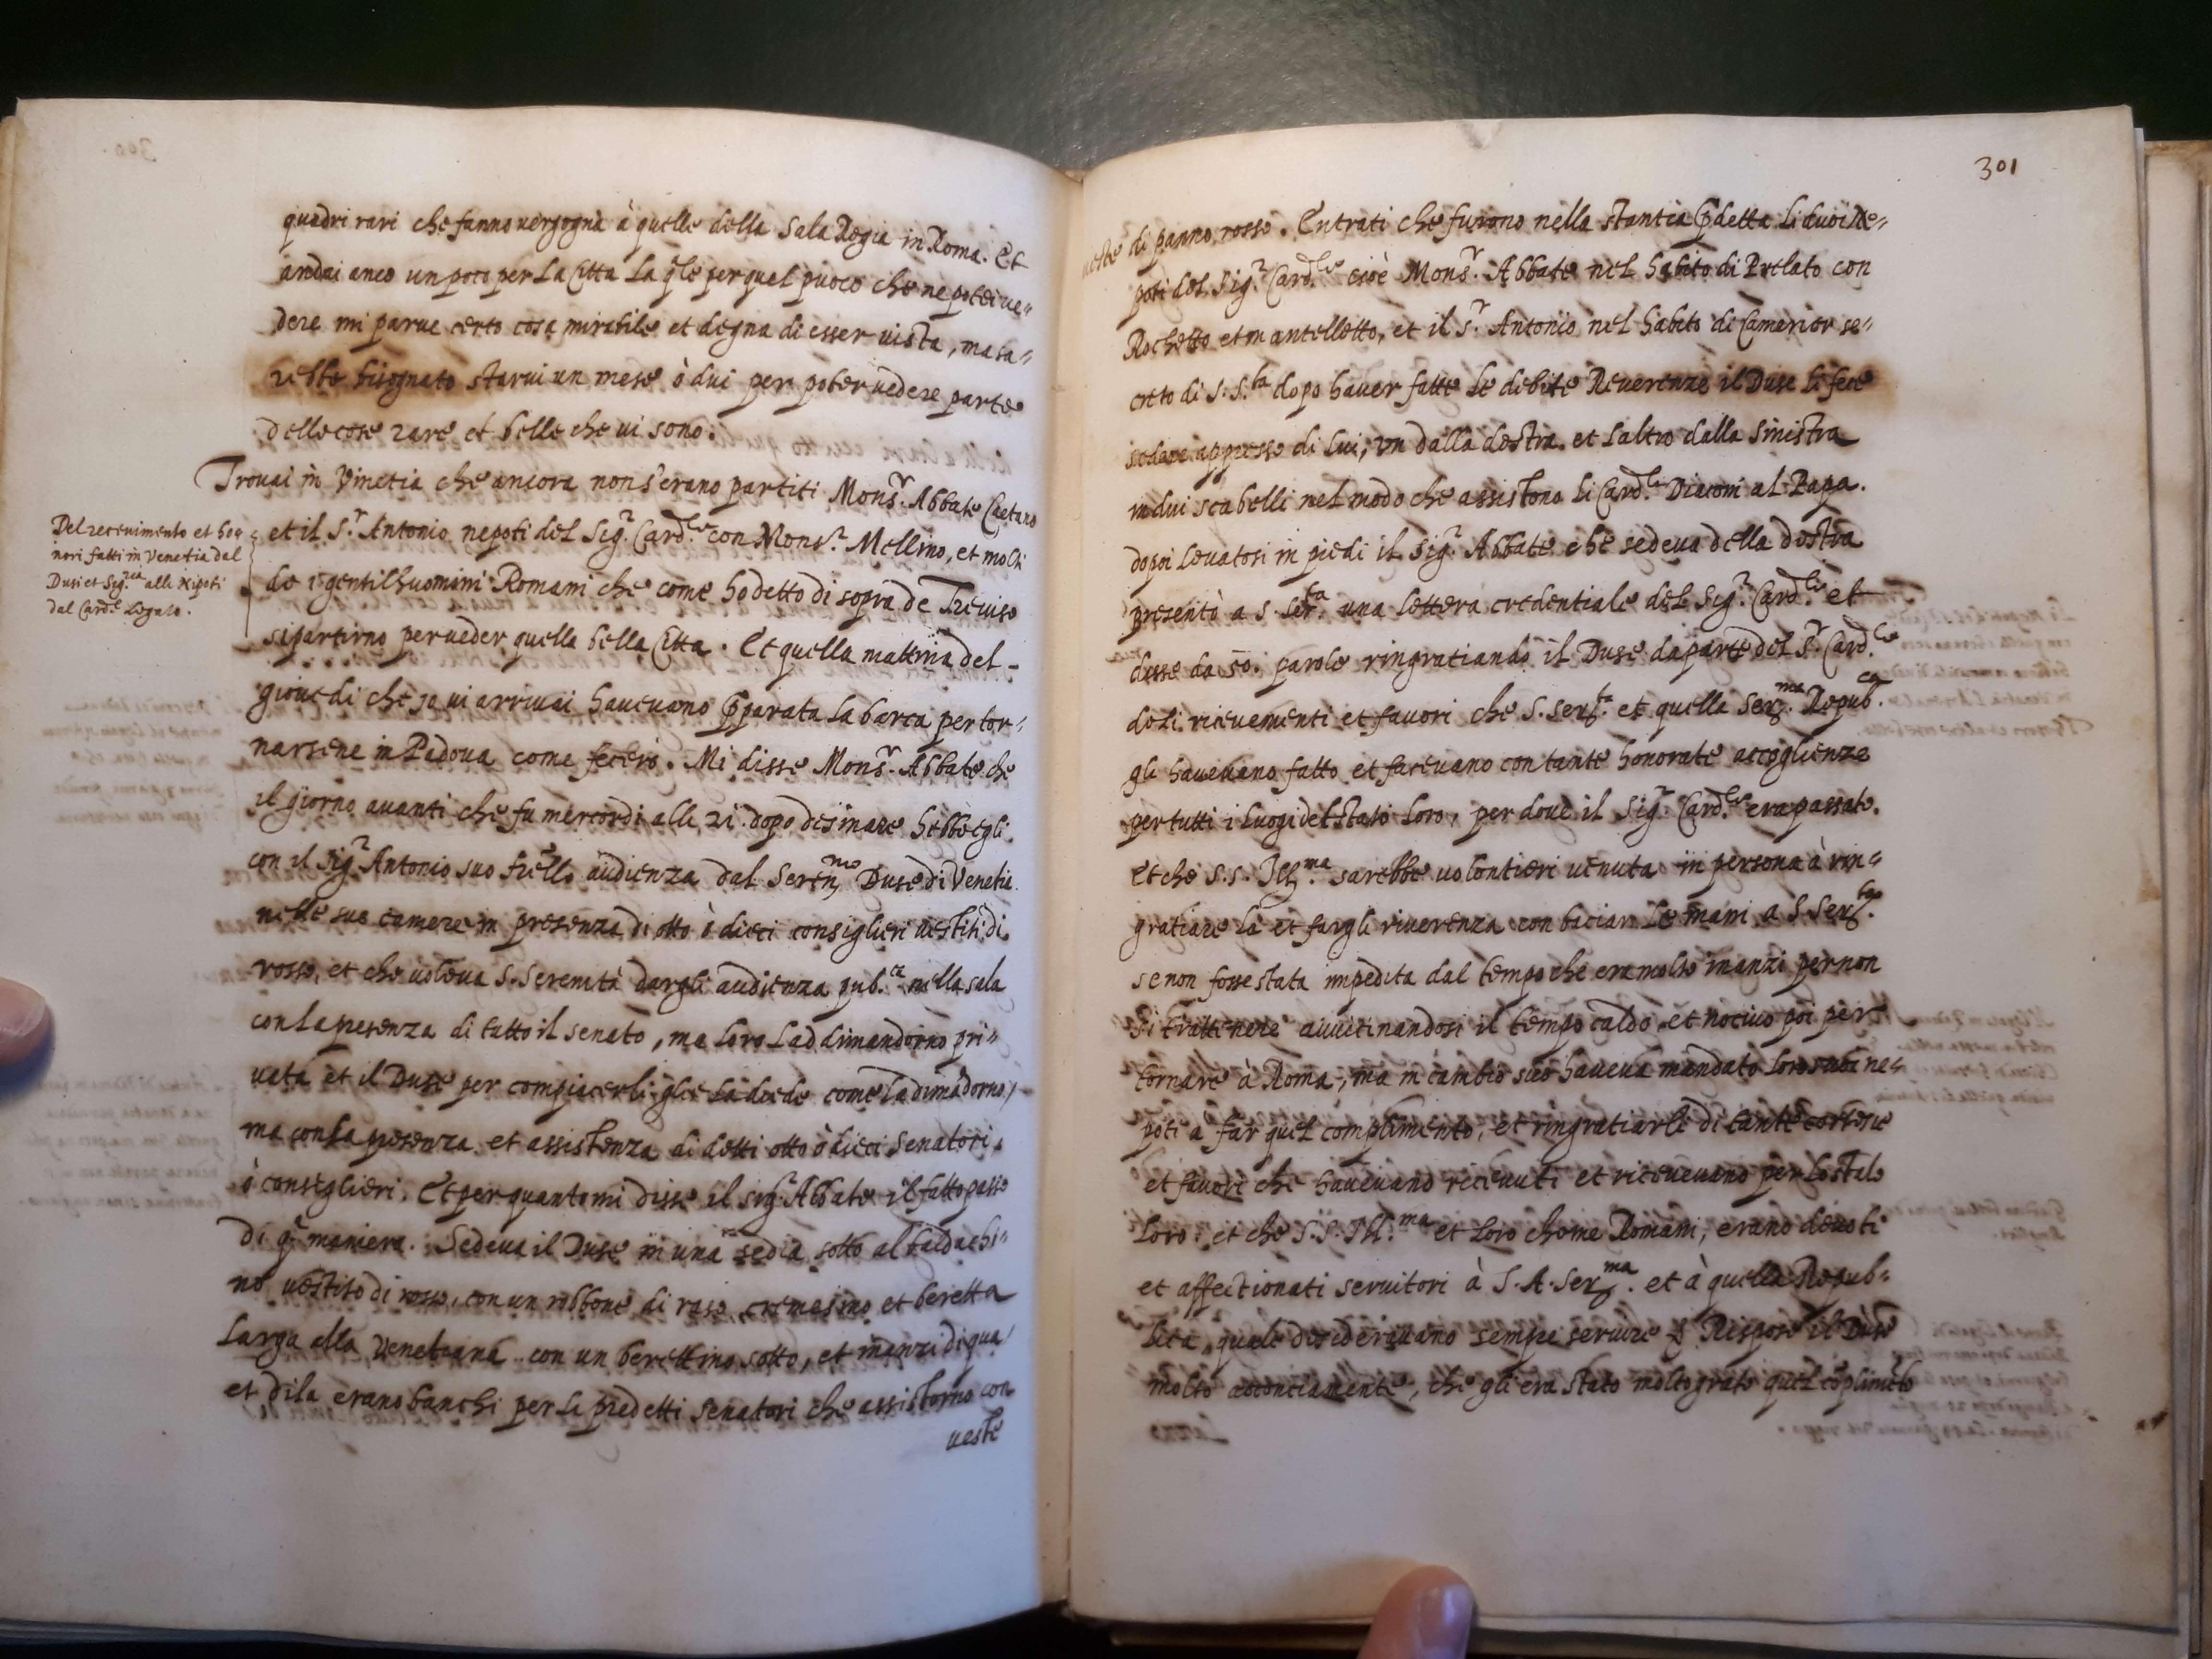 quadri rari che fanno vergogna à quelle della Sala Regia in Roma. Et
andai anco un poco per la Citta la qle per quel puoco che ne potei ve=
dere mi parue certo cosa mirabile et degna di esser uista, ma sa=
rebbe bisognato starui un mese ò dui per poter uedere parte
delle cose rare et belle che ui sono.
Trouai in Vinetia che ancora non s'erano partiti Monsr. Abbate Caetano
et il Sr. Antonio nepoti del Sigr. Cardle con Monsr. Mellino, et molti
de i gentilhuomini Romani che come ho detto di sopra de Treuiso
si partirno per ueder quella bella Citta. Et quella mattina del
giouedi che io ui arriuai haueuano pparata la barca per tor=
narsene in Padoua come fecero. Mi disse Monsr. Abbate che
il giorno auanti che fu mercordi alli 21. dopo desinare hebbe egli
con il Sigr. Antonio suo frello audienza dal Serenmo Duse di Venetia
nelle sue camere in presenza di otto ò dieci consiglieri uestiti di
rosso, et che uoleua S. Serenità dargli audienza pub.ca nella sala
con la presenza di tutto il senato, ma loro l'addimandorno pri=
uata et il Duse per compiacerli glie la diede come la dimãdorno,
ma con la presenza et assistenza di detti otto ò dieci Senatori
ò consiglieri. Et per quanto mi disse il sigr. Abbate il fatto passò
di qa maniera. Sedeua il Duse in una sedia sotto al baldachi=
no uestito di rosso, con un robbone di raso cremesino et beretta
larga alla Venetiana con un berettino sotto, et inanzi di qua
et di la erano banchi per li predetti senatori che assistorno con
ueste
Del receuimento et ho=
nori fatti in Venetia dal
Duse et Sigria alli Nipoti
dal Card.e Legato.
301
ueste di panno rosso. Entrati che furono nella stantia pdetta li duoi Ne=
poti del Sigr. Cardle cioè Monsr. Abbate nel habito di Prelato con
Rochetto et mantelletto, et il Sr. Antonio nel habito di Camerier se=
creto di S. S.ta dopo hauer fatte le debite Reuerenze il Duse li fece
sedere appresso di lui, un dalla destra et l'altro dalla sinistra
in dui scabelli nel modo che assistono li Cardli Diaconi al Papa.
dopoi leuatosi in piedi il Sigr. Abbate che sedeua della destra
presentò a S. Ser.ta una lettera credentiale del Sigr. Cardle et
disse da 50. parole ringratiando il Duse da parte del Sr. Cardle
de li riceuementi et fauori che S. Ser.ta et quella Ser.ma Repub.ca
gli haueuano fatto et faceuano con tante honorate accoglienze
per tutti i luogi del stato loro, per doue il Sigr. Cardle era passato.
Et che S. S. Ill.ma sarebbe uolontieri uenuta in persona à rin=
gratiare la et fargli riuerenza con baciar le mani a S. Ser.ta
se non fosse stata impedita dal tempo che era molto inanzi per non
si trattenere auuicinandosi il tempo caldo et nociuo poi per
tornare à Roma, ma in cambio suo haueua mandato loro suoi ne=
poti a far quel complimento, et ringratiarli di tante cortesie
et fauori che haueuano riceuuti et riceueuano per lo stato
loro: et che S. S. Ill.ma et loro come Romani, erano deuoti
et affectionati seruitori à S. A. Ser.ma et à quella Repub=
lica, quale desiderauano sempre seruire. Rispose il Duse
molto acconciamente, che gli era stato molto grato quel cõplimẽto